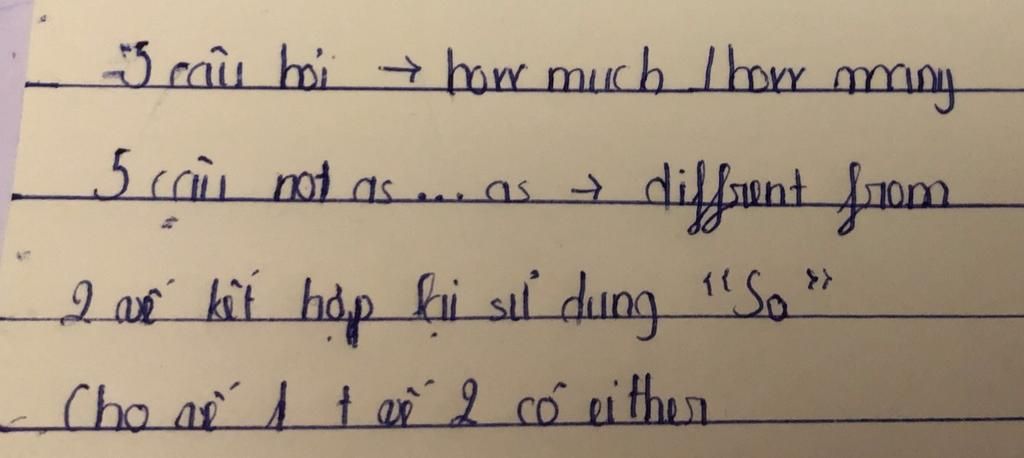 - 5 câu hỏi → how much / how many
5 câu not as ... as → diffrent from
2 vế kết hợp khi sử dụng "So"
- Cho vế 1 + vế 2 có either